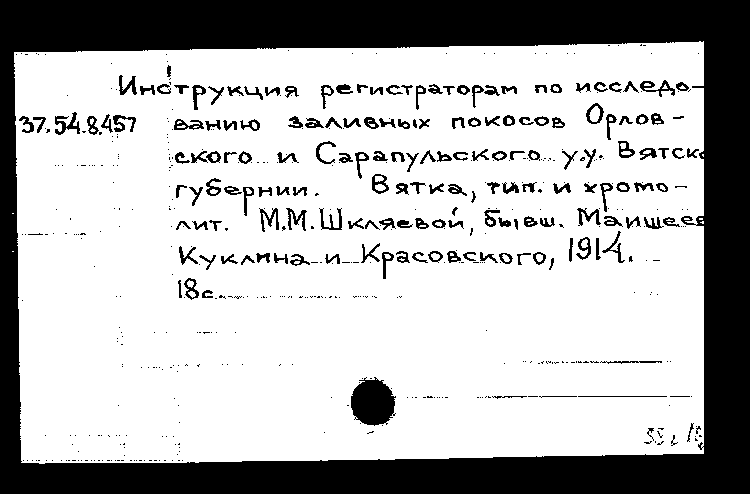 Инструкция регистраторам по исследо-
37.54.8.457 ванию заливных покосов Орлов-
ского и Сарапульского у.у. Вятск
губернии. Вятка, тип. и хромо-
лит. М.М. Шкляевой, бывш. Маишеев
Куклина и Красовского, 1914.
18с.